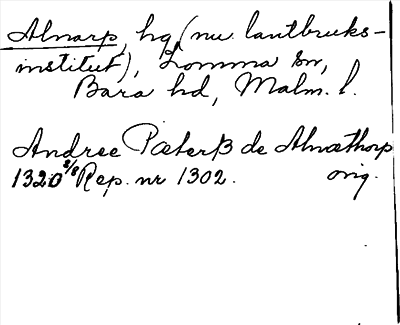 Alnarp, hg (nu lantbruks-
institut), Lomma sn,
Bara hd, Malm. l.
Andree Pæterß de Alnæthorp
1320 8/8 Rep. nr 1302. orig.